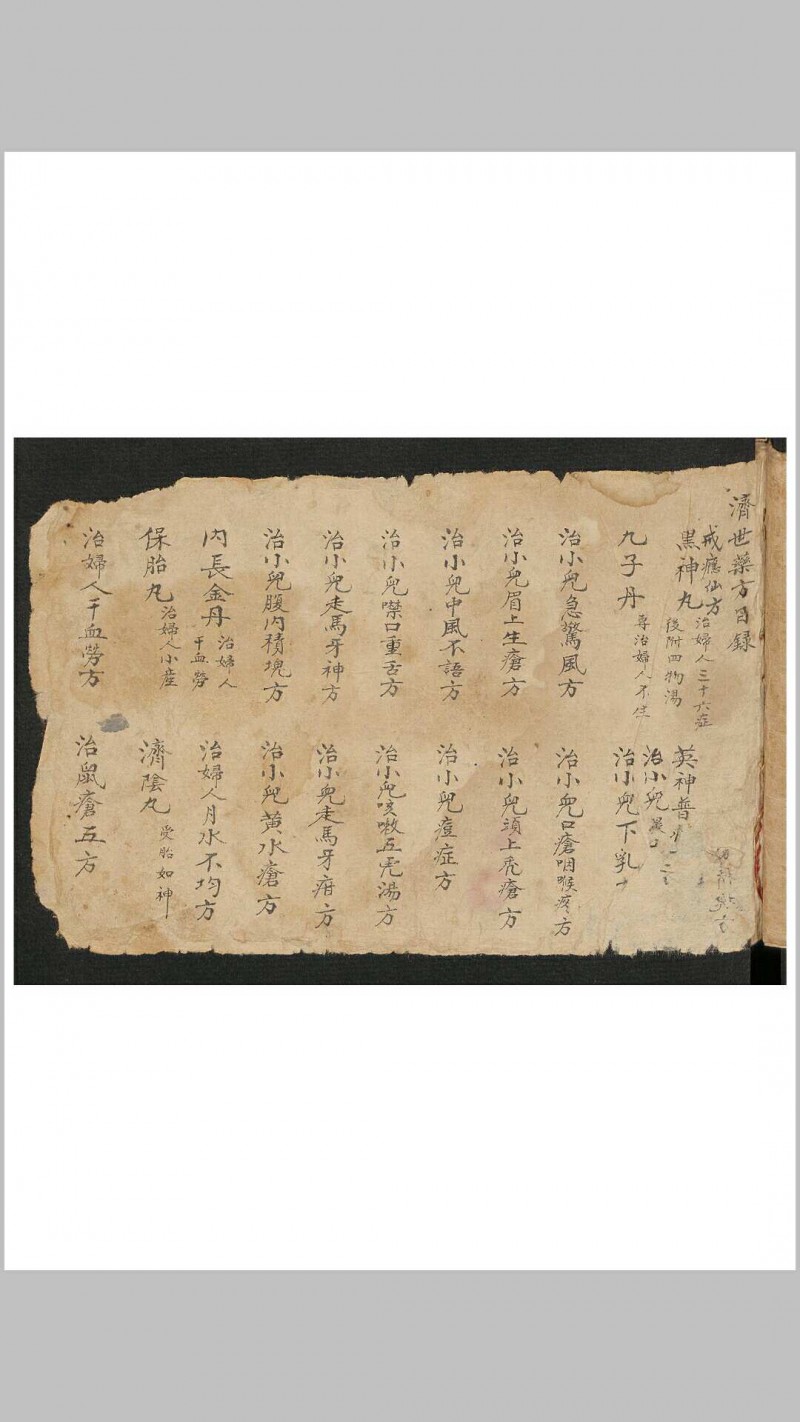 濟世藥方目録
戒癮仙方
黑神丸 治婦人三十六症 後附四物湯
英神普
九子丹 專治婦人不生
治小兒
治小兒下乳
治小兒急驚風方
治小兒口瘡咽喉疼方
治小兒眉上生瘡方
治小兒頭上禿瘡方
治小兒中風不語方
治小兒痘症方
治小兒噤口重舌方
治小兒咳嗽五虎湯方
治小兒走馬牙神方
治小兒走馬牙疳方
治小兒腹內積塊方
治小兒黃水瘡方
內長金丹 治婦人干血勞
治婦人月水不均方
保胎丸 治婦人小産
濟陰丸 受胎如神
治婦人干血勞方
治鼠瘡五方